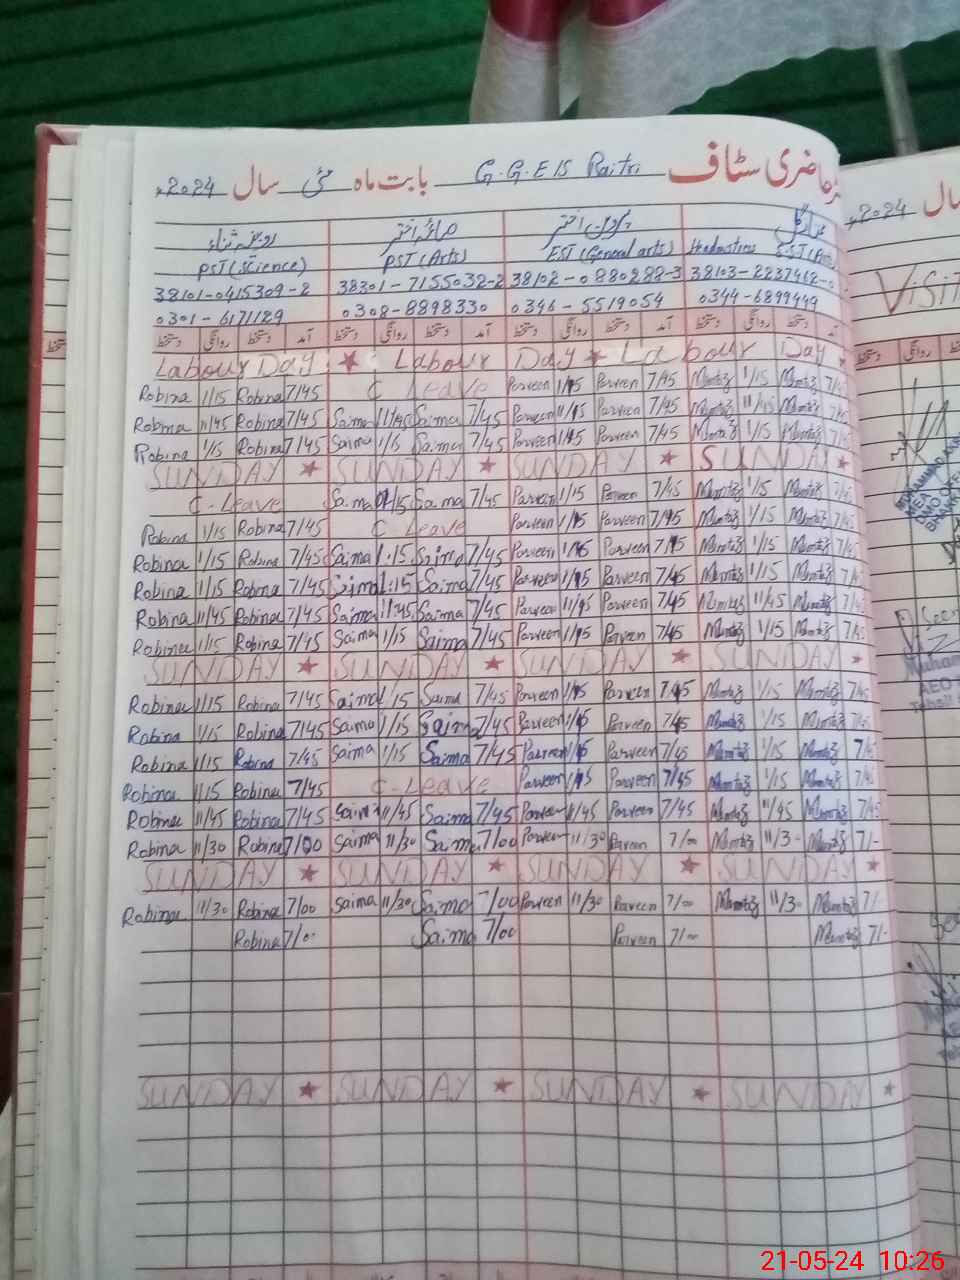 حاضری سٹاف G.G.E/S Raitri بابت ماہ مئی سال 2024ء
روبینہ ثناء صائمہ اختر پروین اختر
PST (Science) PST (Arts) EST (General arts) Headmistres SST (Arts)
38101-0415309-2 38301-7155032-2 38102-0880288-3 38103-2237462-0
0301-6171129 0308-8898330 0346-5519054 0344-6899449
دستخط روانگی دستخط آمد دستخط روانگی دستخط آمد دستخط روانگی دستخط آمد دستخط روانگی دستخط آمد
Labour Day ★ Labour Day ★ Labour Day ★
Robina 1/15 Robina 7/45 C Leave Parveen 1/15 Parveen 7/45 Mumtaz 1/15 Mumtaz 7/45
Robina 11/45 Robina 7/45 Saima 11/45 Saima 7/45 Parveen 11/45 Parveen 7/45 Mumtaz 11/45 Mumtaz 7/45
Robina 1/15 Robina 7/45 Saima 1/15 Saima 7/45 Parveen 1/15 Parveen 7/45 Mumtaz 1/15 Mumtaz 7/45
SUNDAY ★ SUNDAY ★ SUNDAY ★ SUNDAY ★
C-Leave Saima 01/15 Saima 7/45 Parveen 1/15 Parveen 7/45 Mumtaz 1/15 Mumtaz 7/45
Robina 1/15 Robina 7/45 C Leave Parveen 1/15 Parveen 7/45 Mumtaz 1/15 Mumtaz 7/45
Robina 1/15 Robina 7/45 Saima 1:15 Saima 7/45 Parveen 1/15 Parveen 7/45 Mumtaz 1/15 Mumtaz 7/45
Robina 1/15 Robina 7/45 Saima 1:15 Saima 7/45 Parveen 1/15 Parveen 7/45 Mumtaz 1/15 Mumtaz 7/45
Robina 11/45 Robina 7/45 Saima 11:45 Saima 7/45 Parveen 11/45 Parveen 7/45 Mumtaz 11/45 Mumtaz 7/45
Robina 1/15 Robina 7/45 Saima 1/15 Saima 7/45 Parveen 1/15 Parveen 7/45 Mumtaz 1/15 Mumtaz 7/45
SUNDAY ★ SUNDAY ★ SUNDAY ★ SUNDAY ★
Robina 1/15 Robina 7/45 Saima 1/15 Saima 7/45 Parveen 1/15 Parveen 7/45 Mumtaz 1/15 Mumtaz 7/45
Robina 1/15 Robina 7/45 Saima 1/15 Saima 7/45 Parveen 1/15 Parveen 7/45 Mumtaz 1/15 Mumtaz 7/45
Robina 1/15 Robina 7/45 Saima 1/15 Saima 7/45 Parveen 1/15 Parveen 7/45 Mumtaz 1/15 Mumtaz 7/45
Robina 1/15 Robina 7/45 C-Leave Parveen 1/15 Parveen 7/45 Mumtaz 1/15 Mumtaz 7/45
Robina 11/45 Robina 7/45 Saima 11/45 Saima 7/45 Parveen 11/45 Parveen 7/45 Mumtaz 11/45 Mumtaz 7/45
Robina 11/30 Robina 7/00 Saima 11/30 Saima 7/00 Parveen 11/30 Parveen 7/00 Mumtaz 11/30 Mumtaz 7/-
SUNDAY ★ SUNDAY ★ SUNDAY ★ SUNDAY
Robina 11/30 Robina 7/00 Saima 11/30 Saima 7/00 Parveen 11/30 Parveen 7/00 Mumtaz 11/30 Mumtaz 7/-
Robina 7/00 Saima 7/00 Parveen 7/00 Mumtaz 7/-
SUNDAY ★ SUNDAY ★ SUNDAY ★ SUNDAY ★
سال 2024ء
دستخط روانگی
21-05-24 10:26